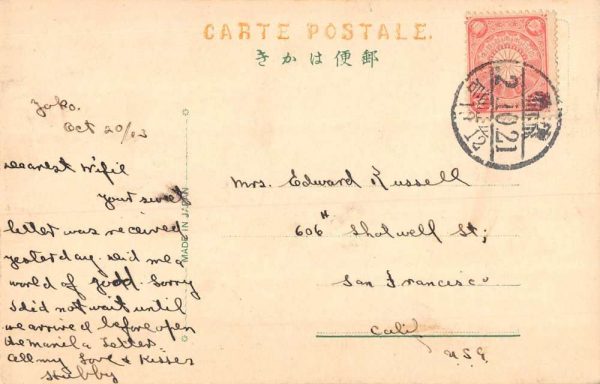 CARTE POSTALE.
きかは便郵
2.10.21
Yoko.
Oct 20/13
Dearest Wifie
your sweet
letter was received
yesterday. did me a
world of good. Sorry
I did not wait until
we arrived before open
the manila letter
all my Love & Kisses
Hubby
MADE IN JAPAN
Mrs. Edward Russell
606 Shotwell St;
San Francisco
Calif
USA